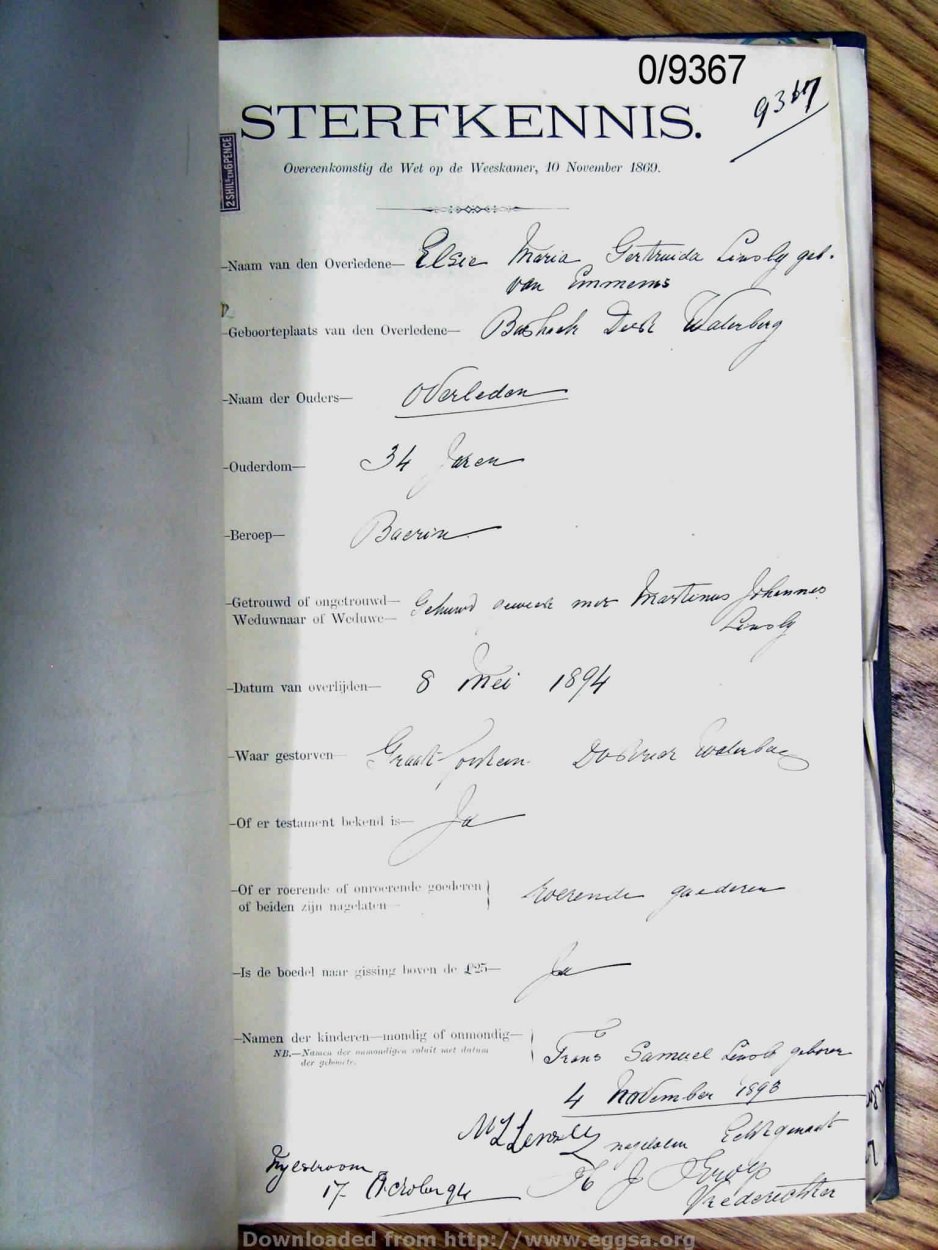 0/9367
9367
STERFKENNIS.
2 SHILS EN 6 PENCE
Overeenkomstig de Wet op de Weeskamer, 10 November 1869.
—Naam van den Overledene— Elsie Maria Gertruida Lensly geb.
van Emmenis
—Geboorteplaats van den Overledene— Boshoek Distr Waterberg
—Naam der Ouders— Overleden
—Ouderdom— 34 Jaren
—Beroep— Boerin
—Getrouwd of ongetrouwd— Gehuwd geweest met Martinus Johannes
Weduwnaar of Weduwe— Lensly
—Datum van overlijden— 8 Mei 1894
—Waar gestorven— Waterberg
—Of er testament bekend is— Ja
—Of er roerende of onroerende goederen
of beiden zijn nagelaten— roerende goederen
—Is de boedel naar gissing boven de £25— Ja
—Namen der kinderen—mondig of onmondig—
NB.—Namen der onmondigen voluit met datum
der geboorte.
Frans Samuel Lensly geboren
4 November 1893
nagelaten Echtgenoot
Nylstroom
17
Vrederechter
Downloaded from http://www.eggsa.org